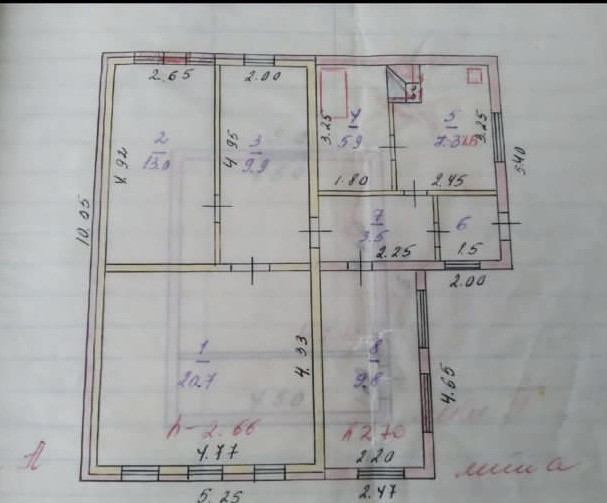 2.65
2.00
2
13.0
4.92
3
9.9
4.95
3.25
4
5.9
1.80
5
3.25
2.45
5.40
10.05
7
3.5
2.25
6
1.5
2.00
1
20.7
4.33
8
9.8
4.65
h-2.66
h 2.70
4.77
2.20
5.25
2.47